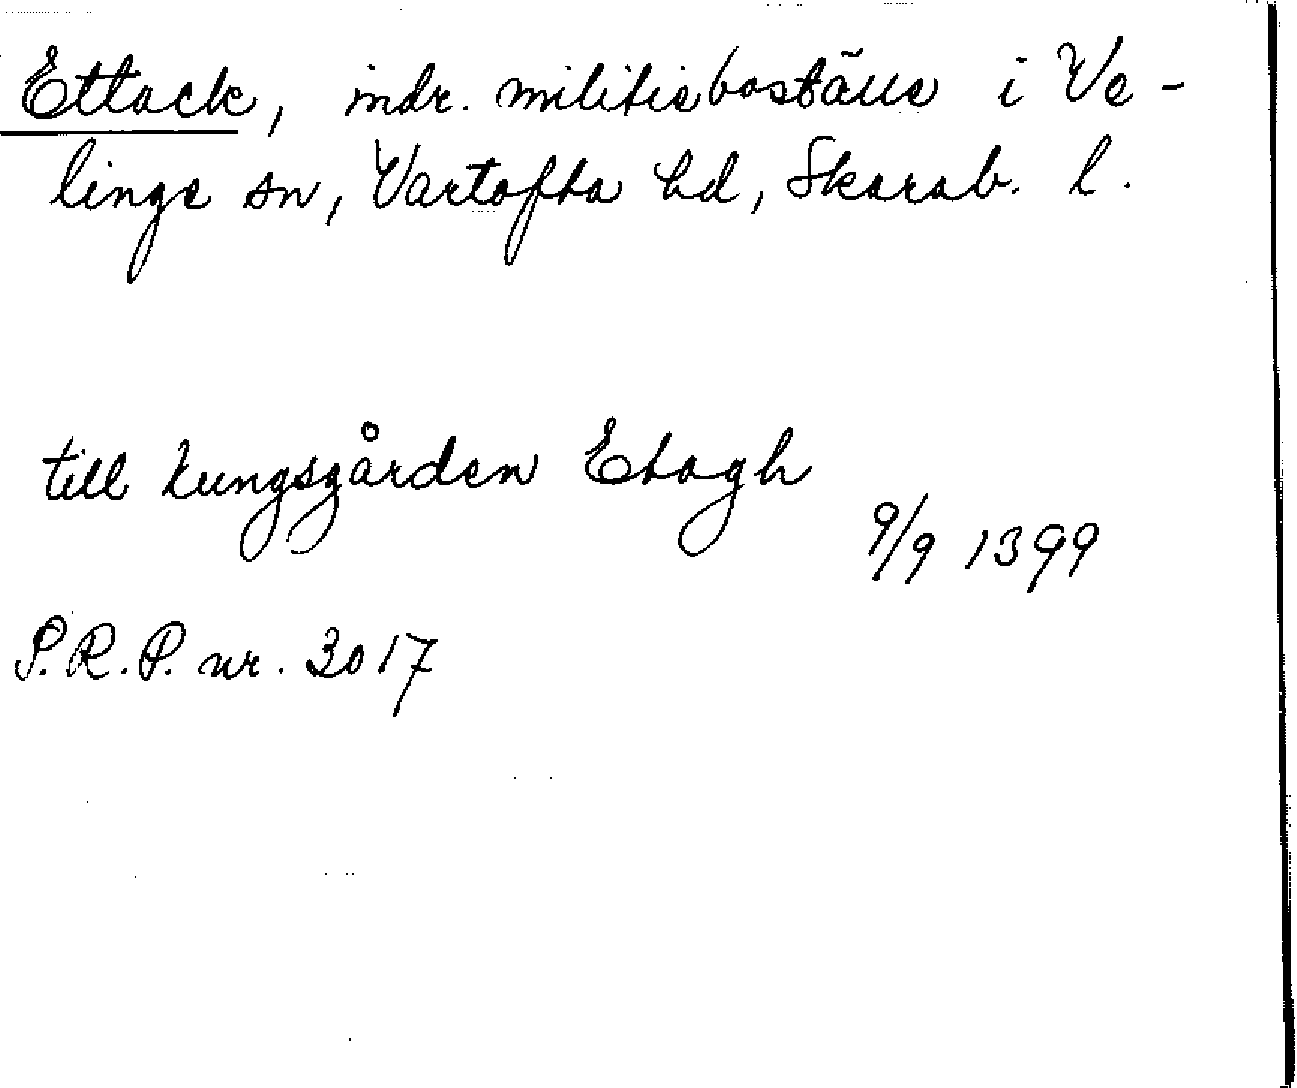 Ettack, indr. militieboställe i Ve-
linge sn, Vartofta hd, Skarab. l.
till kungsgården Etagh
9/9 1399
S.R.P. nr. 3017